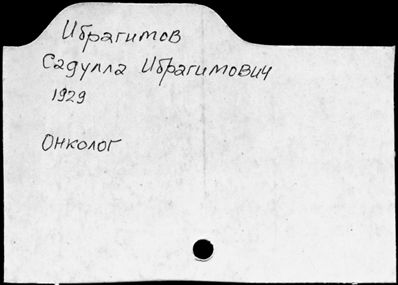 Ибрагимов
Садулла Ибрагимович
1929
Онколог